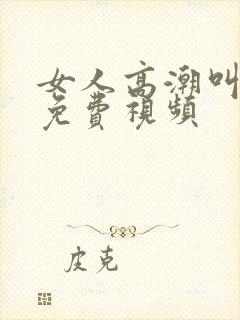 女人高潮叫
免費視頻
皮克